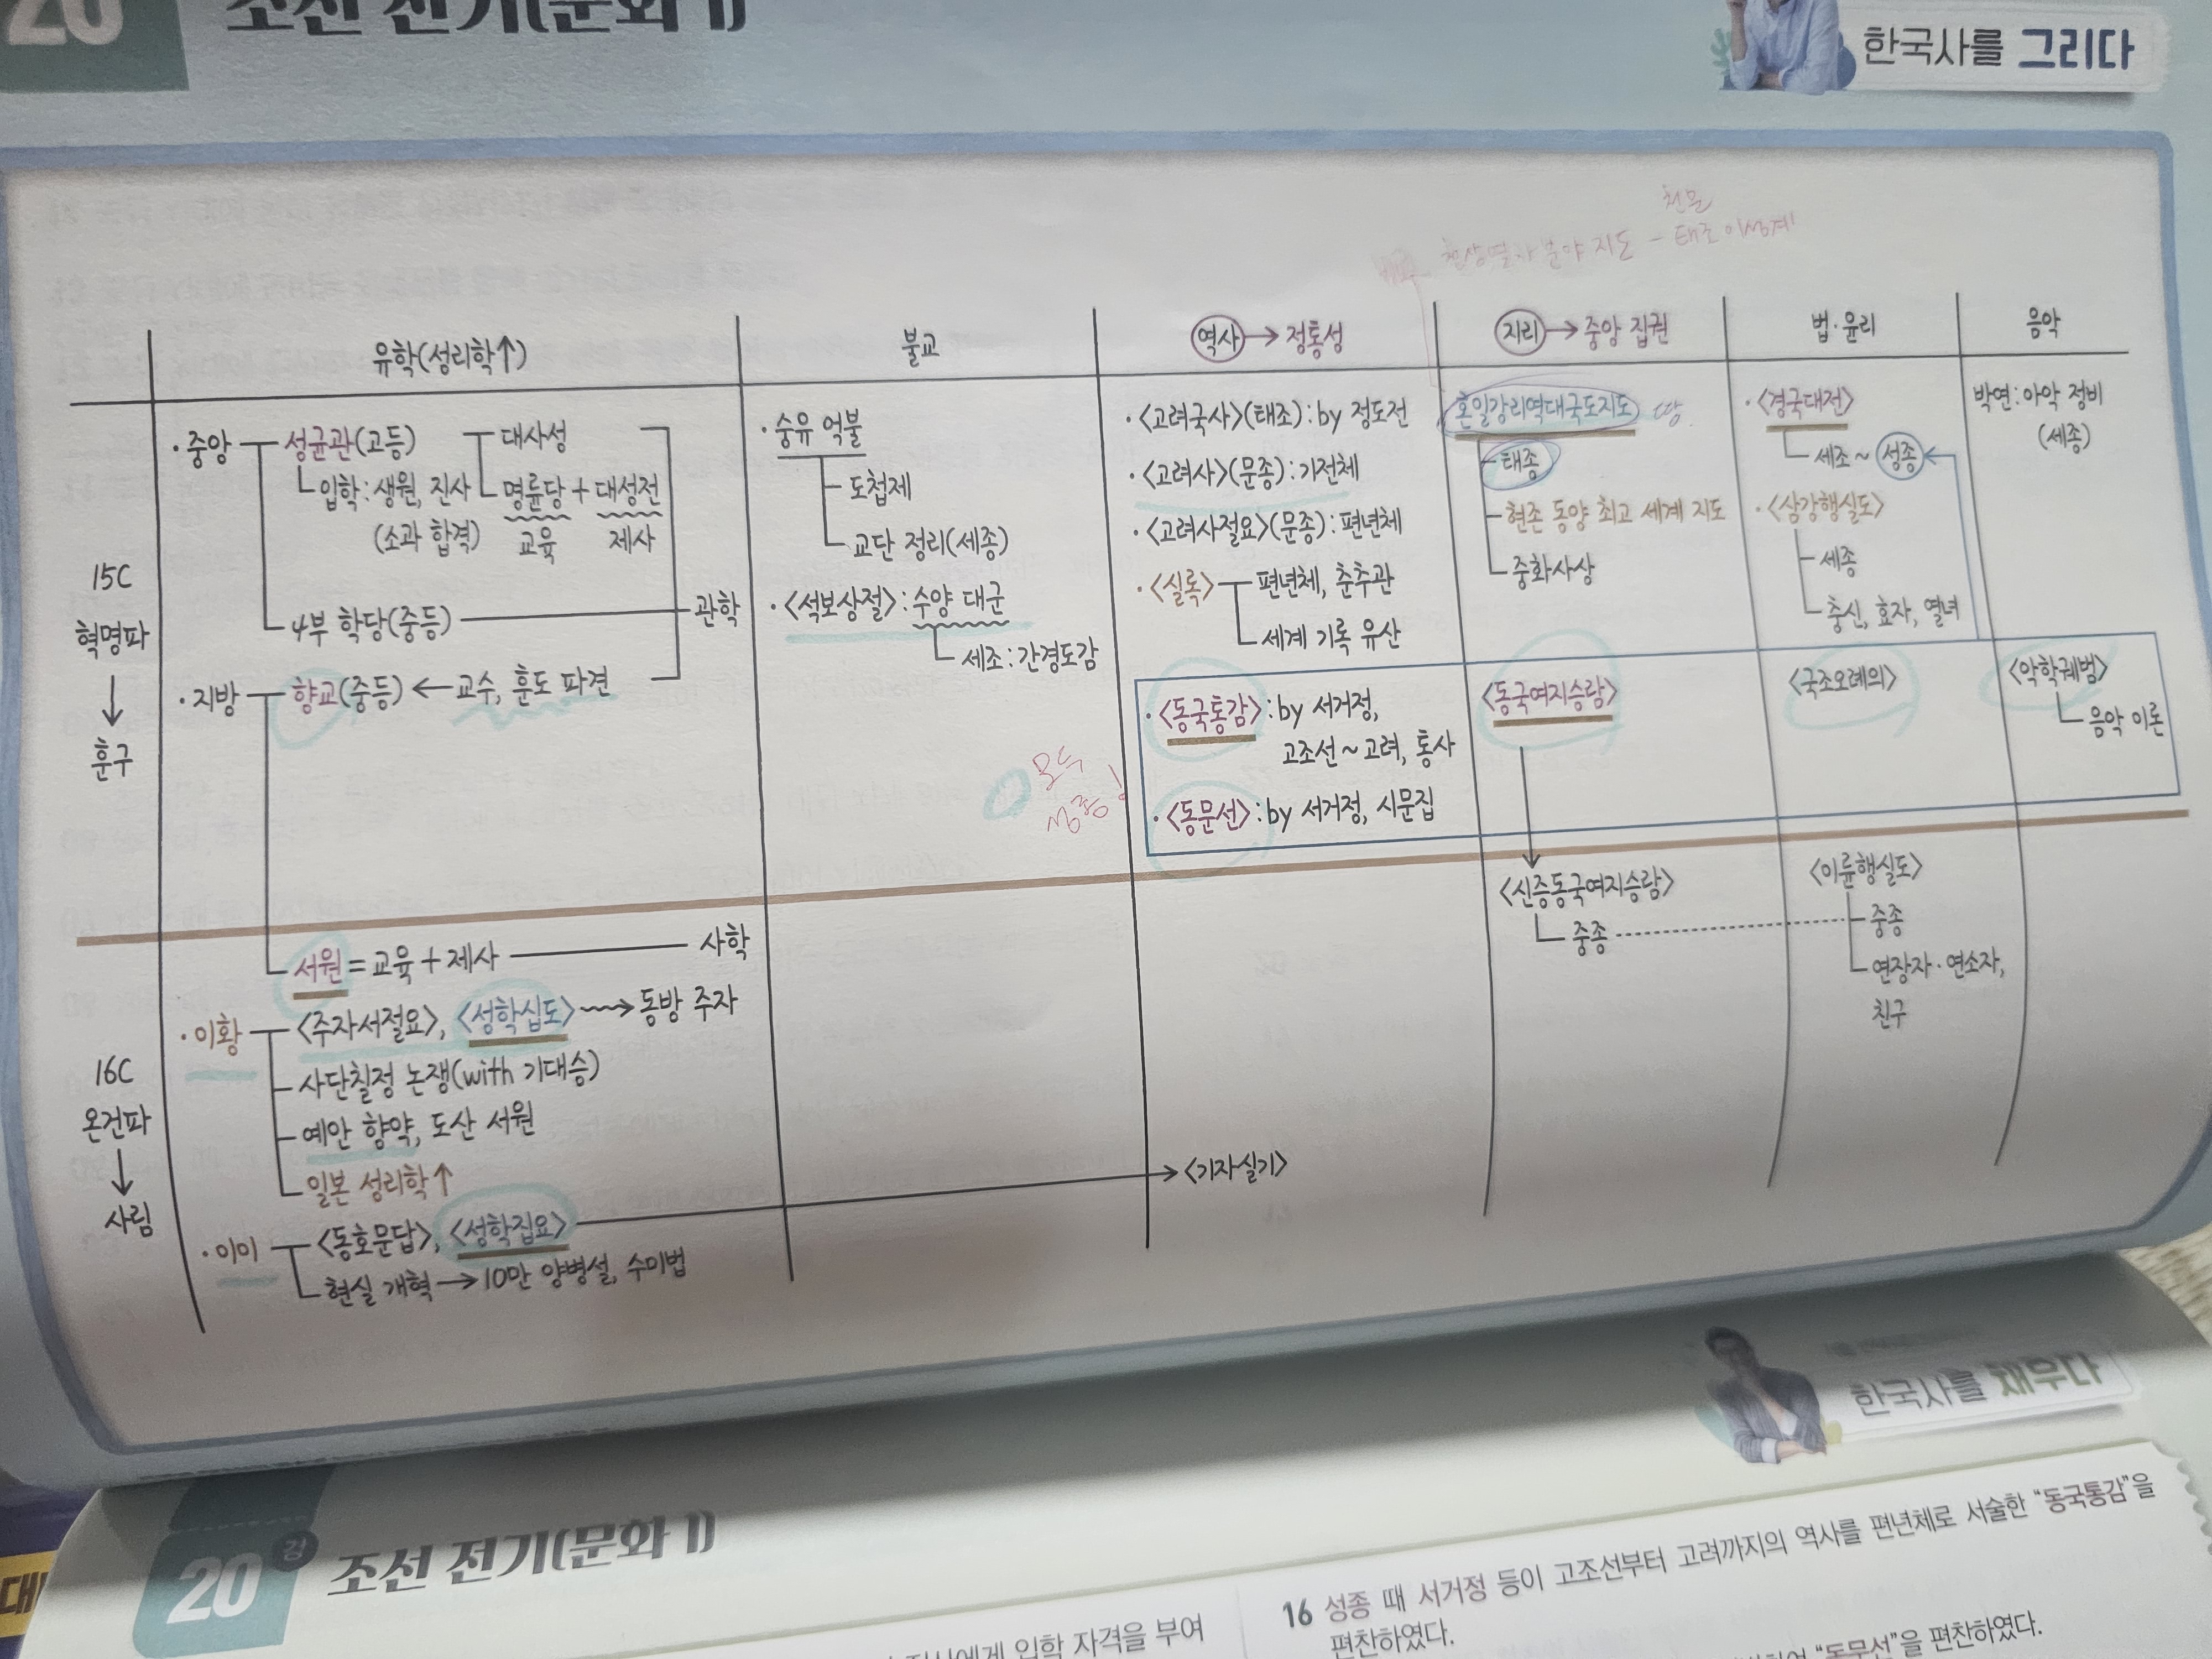 20 조선 전기(문화 1)
한국사를 그리다
천문
천상열차분야지도 - 태조 이성계
유학(성리학↑)
불교
역사 → 정통성
지리 → 중앙 집권
법·윤리
음악
15C
혁명파
↓
훈구
·중앙
성균관(고등)
입학: 생원, 진사
(소과 합격)
대사성
명륜당 + 대성전
교육 제사
4부 학당(중등)
관학
·지방
향교(중등) ← 교수, 훈도 파견
·숭유 억불
도첩제
교단 정리(세종)
·<석보상절>: 수양 대군
세조: 간경도감
·<고려국사>(태조): by 정도전
·<고려사>(문종): 기전체
·<고려사절요>(문종): 편년체
·<실록>
편년체, 춘추관
세계 기록 유산
모두
성종!
·<동국통감>: by 서거정,
고조선~고려, 통사
·<동문선>: by 서거정, 시문집
혼일강리역대국도지도 땅
태종
현존 동양 최고 세계 지도
중화사상
<동국여지승람>
·<경국대전>
세조~성종
·<삼강행실도>
세종
충신, 효자, 열녀
<국조오례의>
박연: 아악 정비
(세종)
<악학궤범>
음악 이론
16C
온건파
↓
사림
서원 = 교육 + 제사
사학
·이황
<주자서절요>, <성학십도> → 동방 주자
사단칠정 논쟁(with 기대승)
예안 향약, 도산 서원
일본 성리학↑
·이이
<동호문답>, <성학집요>
→ <기자실기>
현실 개혁 → 10만 양병설, 수미법
<신증동국여지승람>
중종
<이륜행실도>
중종
연장자·연소자,
친구
한국사를 채우다
20 강 조선 전기(문화 1)
에게 입학 자격을 부여
16 성종 때 서거정 등이 고조선부터 고려까지의 역사를 편년체로 서술한 "동국통감"을
편찬하였다.
"동문선"을 편찬하였다.